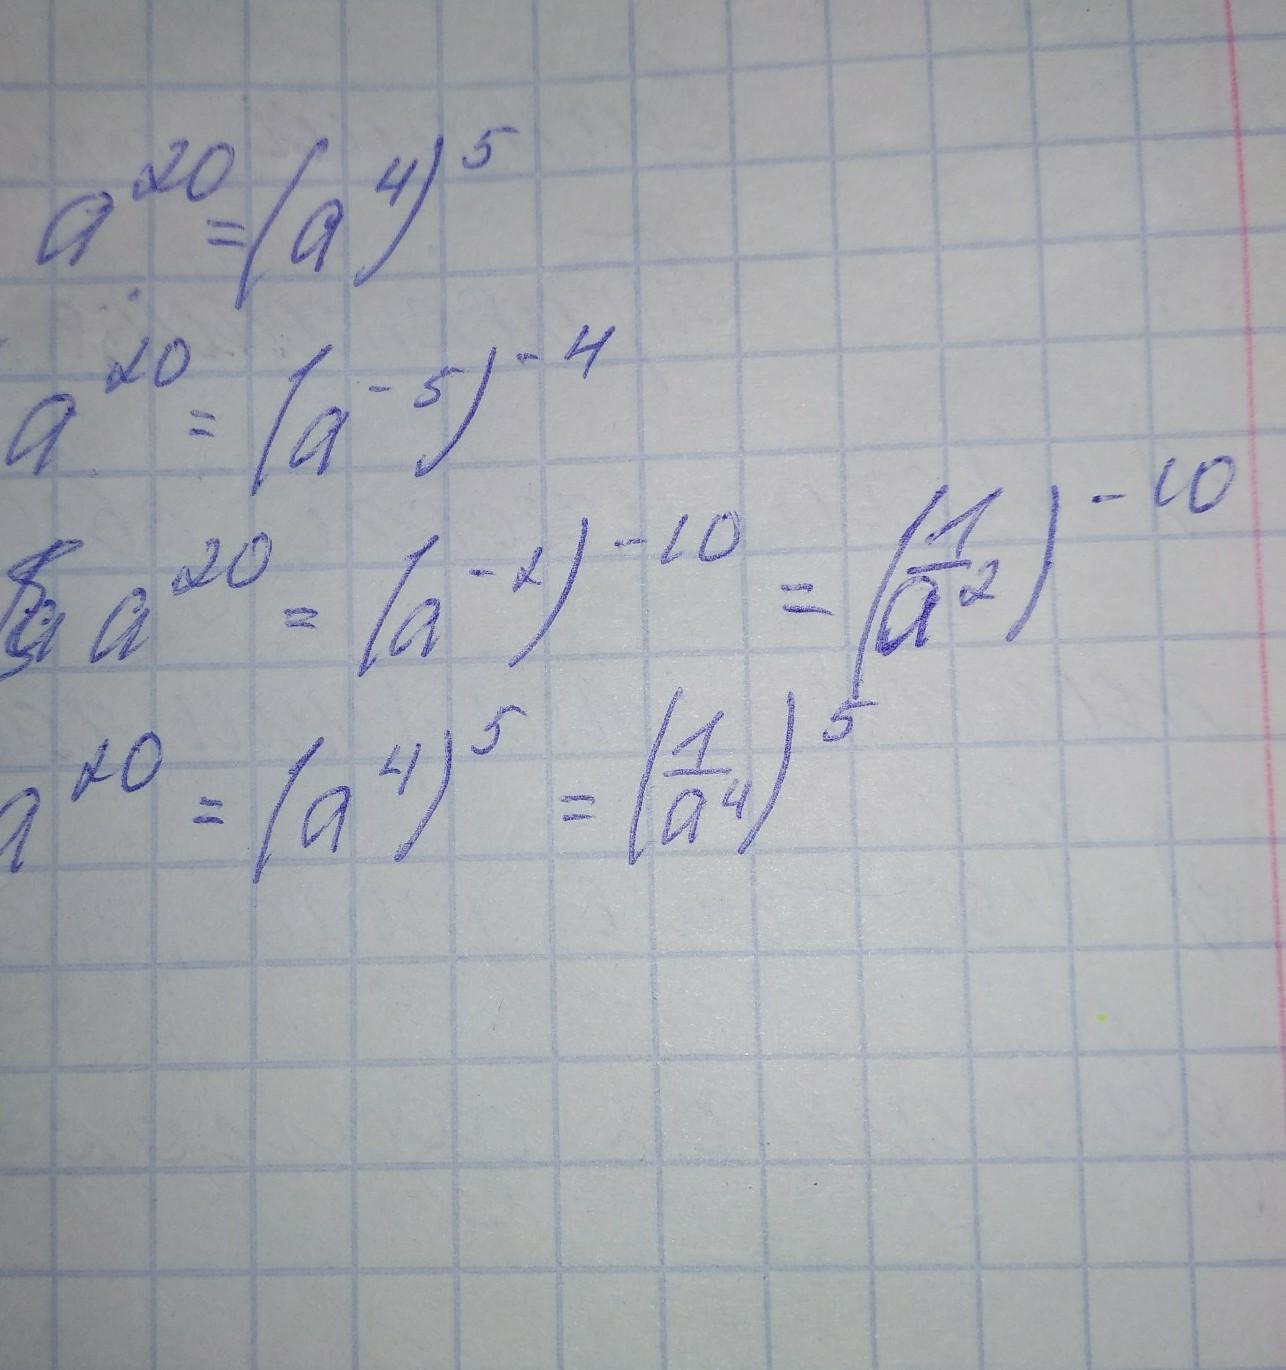 a²⁰ = (a⁴)⁵
a²⁰ = (a⁻⁵)⁻⁴
a²⁰ = (a⁻²)⁻¹⁰ = (1/a²)⁻¹⁰
a²⁰ = (a⁴)⁵ = (1/a⁴)⁵